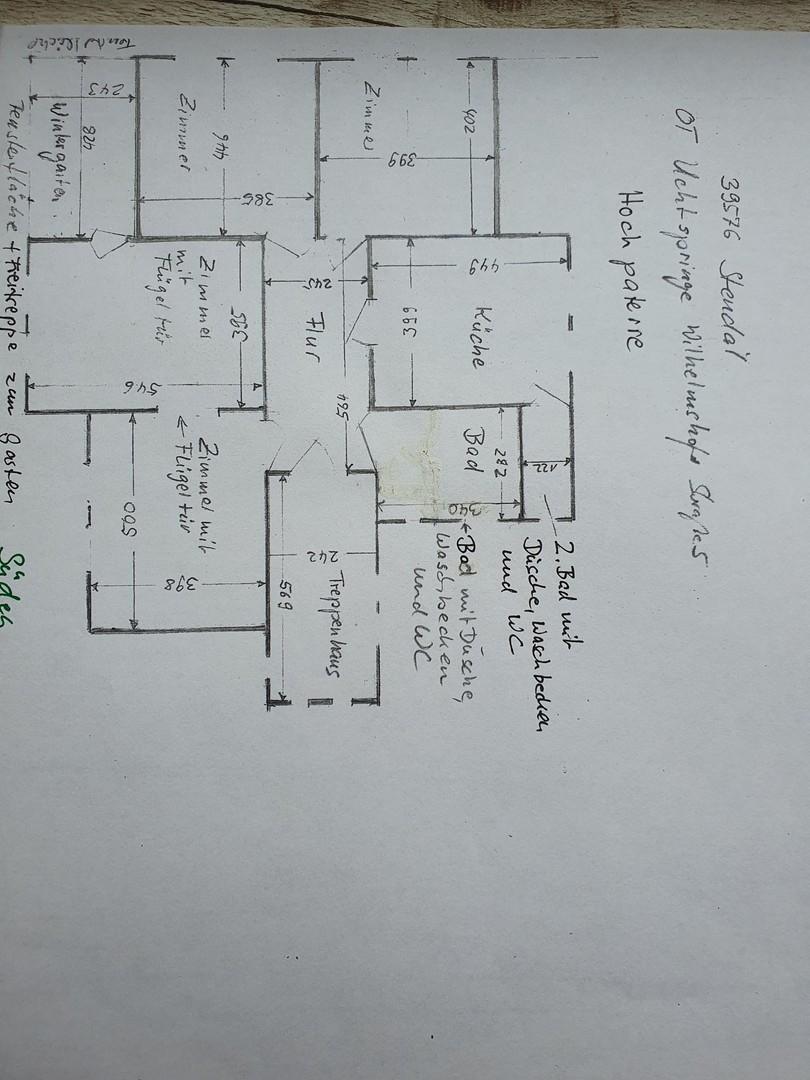 39576 Stendal
OT Uchtspringe Wilhelmshofer Straße 5
Hoch paterre
2. Bad mit
Dusche, Waschbecken
und WC
← Bad mit Dusche,
Waschbecken
und WC
402
399
Zimmer
446
386
Zimmer
243
428
Wintergarten
449
399
Küche
122
282
340
Bad
245
564
Flur
395
546
Zimmer
mit
Flügeltür
Zimmer mit
← Flügeltür
560
398
242
569
Treppenhaus
Fensterfläche + Freitreppe zum Garten
Süden